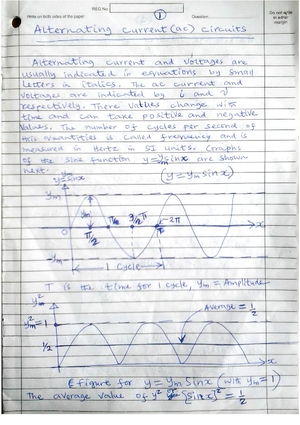 REG No.
Write on both sides of the paper
Question
Do not write in either margin
1
Alternating current (ac) circuits
Alternating current and voltages are
usually indicated in equations by small
letters in italics. The ac current and
voltages are indicated by i and v
respectively. There values change with
time and can take positive and negative
values. The number of cycles per second of
this quantities is called frequency and is
measured in Hertz in SI units. Graphs
of the sine function y=ymsinx are shown
next.
y=sinx
(y = ym sinx)
ym
ym
π/2
3/2 π
2π
0
π/2
x
-ym
1 cycle
T is the time for 1 cycle, ym = Amplitude
y²m
y²m=1
Average = 1/2
1/2
x
figure for y = ym sinx (with ym=1)
The average value of y² [sinx]² = 1/2